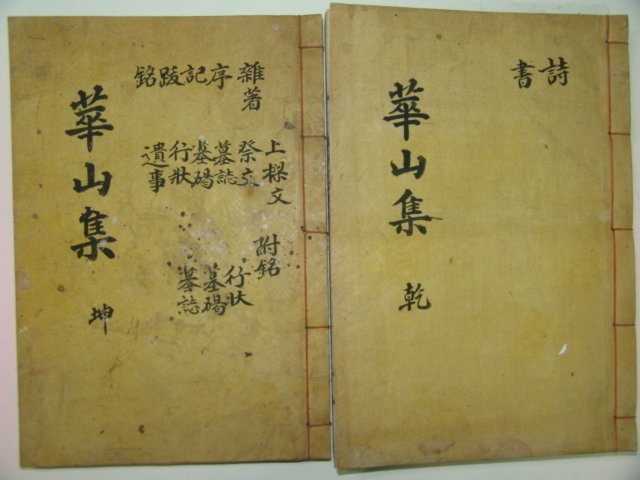 詩
書
華山集 乾
雜著
序
記
跋
銘
上樑文
祭文
墓誌
墓碣
行狀
遺事
附銘
行狀
墓碣
墓誌
華山集 坤